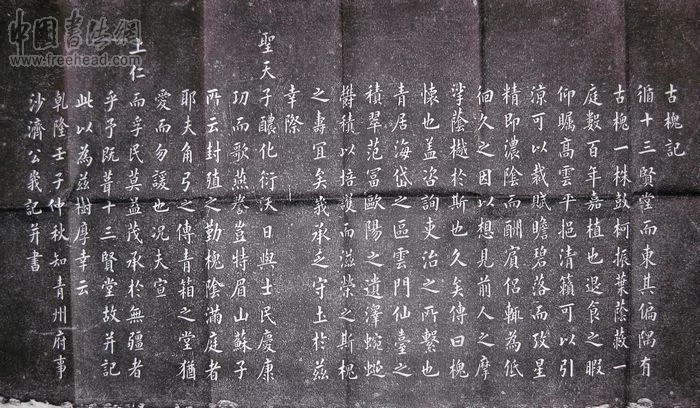 古槐記
循十三賢堂而東其偏隅有
古槐一株鼓柯振葉蔭蔽一
庭數百年嘉植也退食之暇
仰矚高雲平挹清籟可以引
涼可以裁賦瞻碧落而攷星
精即濃陰而酬賓侶輒為低
佪久之因以想見前人之摩
挲蔭樾於斯也久矣傳曰槐
懷也盖咨詢吏治之所繫也
青居海岱之區雲門仙臺之
積翠范富歐陽之遺澤蜿蜒
欝積以培護而滋榮之斯槐
之壽宜矣㦲承乏守土於茲
幸際
聖天子醲化衍沃日與士民慶康
功而歌燕譽豈特眉山蘇子
所云封殖之勤槐陰滿庭者
耶夫角弓之傳青箱之堂猶
愛而勿諼也况夫宣
上仁而孚民莫益茂承於無疆者
乎予既葺十三賢堂故并記
此以為茲樹厚幸云
乾隆壬子仲秋知青州府事
沙濟公峩記并書
中国書法網
www.freehead.com